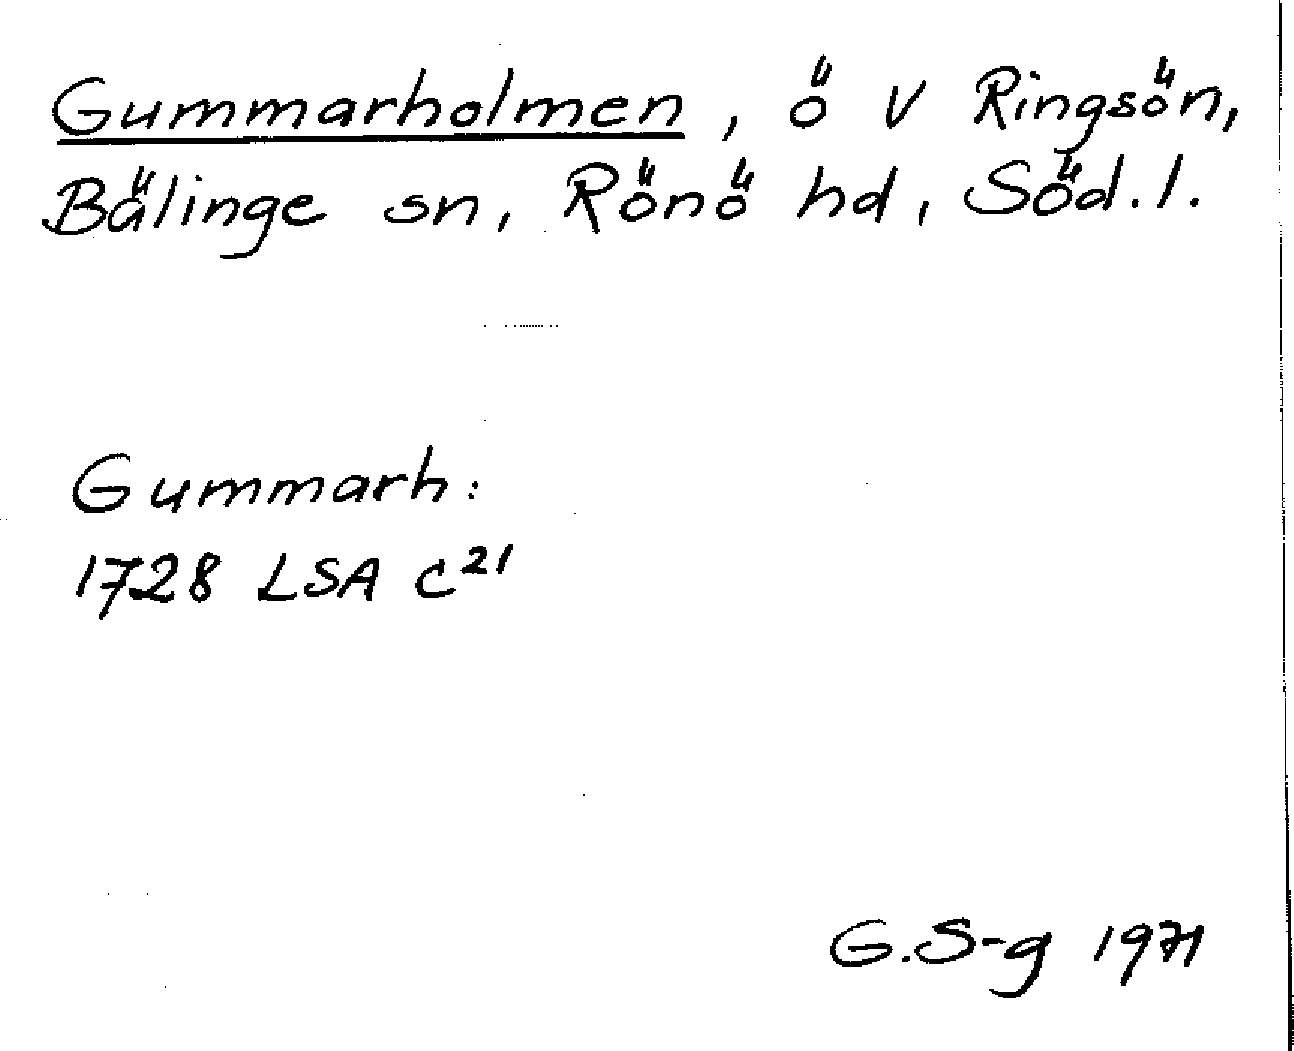 Gummarholmen, ö V Ringsön,
Bälinge sn, Rönö hd, Söd.l.
Gummarh:
1728 LSA C²¹
G.S-g 1971